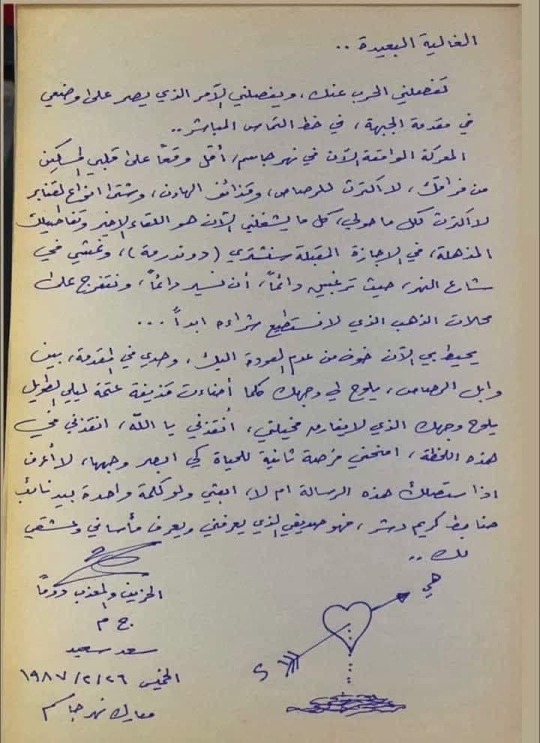 الغالية البعيدة ..
تفصلني الحرب عنك، ويفصلني الآمر الذي يصر على وضعي
في مقدمة الجبهة، في خط التماس المباشر..
المعركة الواقعة الآن في نهر جاسم، أقل وقعاً على قلبي المسكين
من فراقك، لا اكترث للرصاص، وقذائف الهاون، وشتى انواع القنابر
لا اكترث لكل ما حولي، كل ما يشغلني الآن هو اللقاء الاخير وتفاصيلك
المذهلة، في الاجازة المقبلة سنشتري (دوندرمة)، ونمشي في
شارع النهر، حيث ترغبين دائماً، أن نسير دائماً، ونتفرج على
محلات الذهب الذي لا نستطيع شراءه ابداً ...
يحيط بي الآن خوف من عدم العودة اليك، وحدي في المقدمة، بين
وابل الرصاص، يلوح لي وجهك كلما أضاءت قذيفة عتمة ليلي الطويل
يلوح وجهك الذي لا يفارق مخيلتي، أنقذني يا الله، انقذني في
هذه اللحظة، امنحني فرصة ثانية للحياة كي ابصر وجهها، لا أعرف
اذا ستصلك هذه الرسالة ام لا، ابعثي ولو كلمة واحدة بيد نائب
ضابط كريم دشر، فهو صديقي الذي يعرفني ويعرف مأساتي وعشقي
لك ..
الحزين والمعذب دوماً
ج م
سعد سعيد
الخميس ١٩٨٧/٢/٢٦
معارك نهر جاسم
S
حي